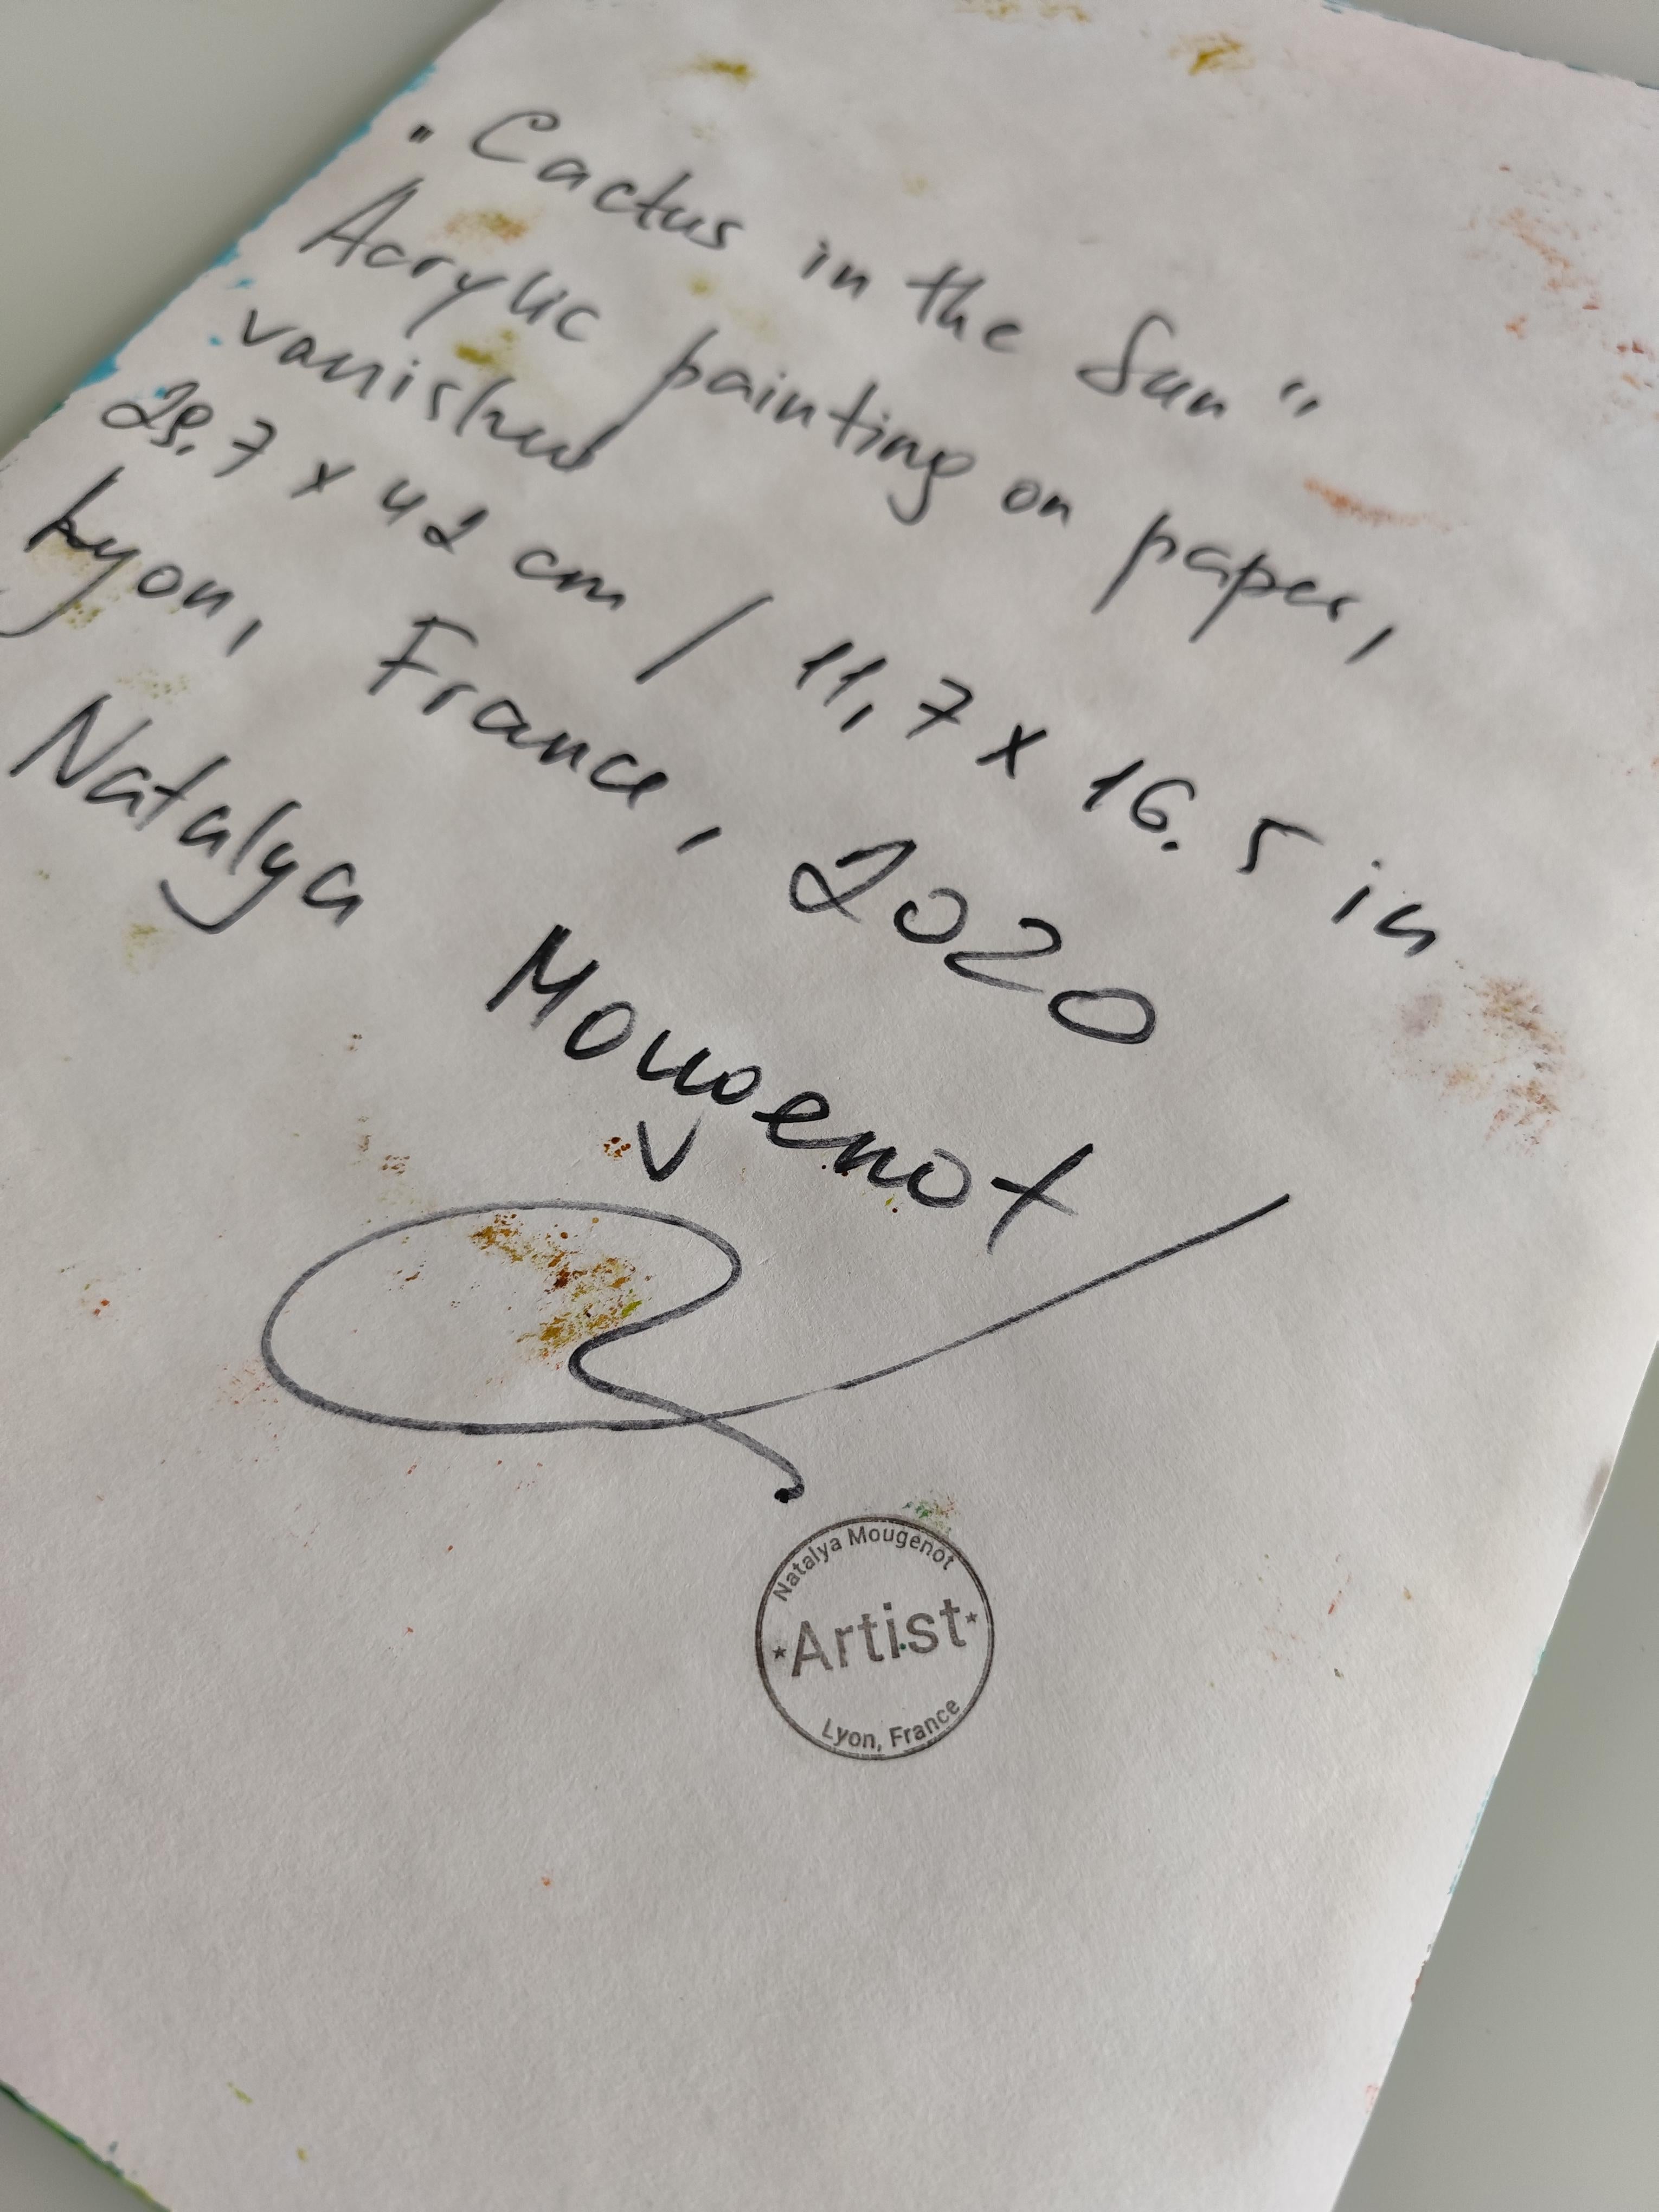 "Cactus in the Sun"
Acrylic painting on paper,
vanished
29.7 x 42 cm / 11,7 x 16.5 in
Lyon, France, 2020
Natalya Mougenot
Natalya Mougenot
Artist
Lyon, France